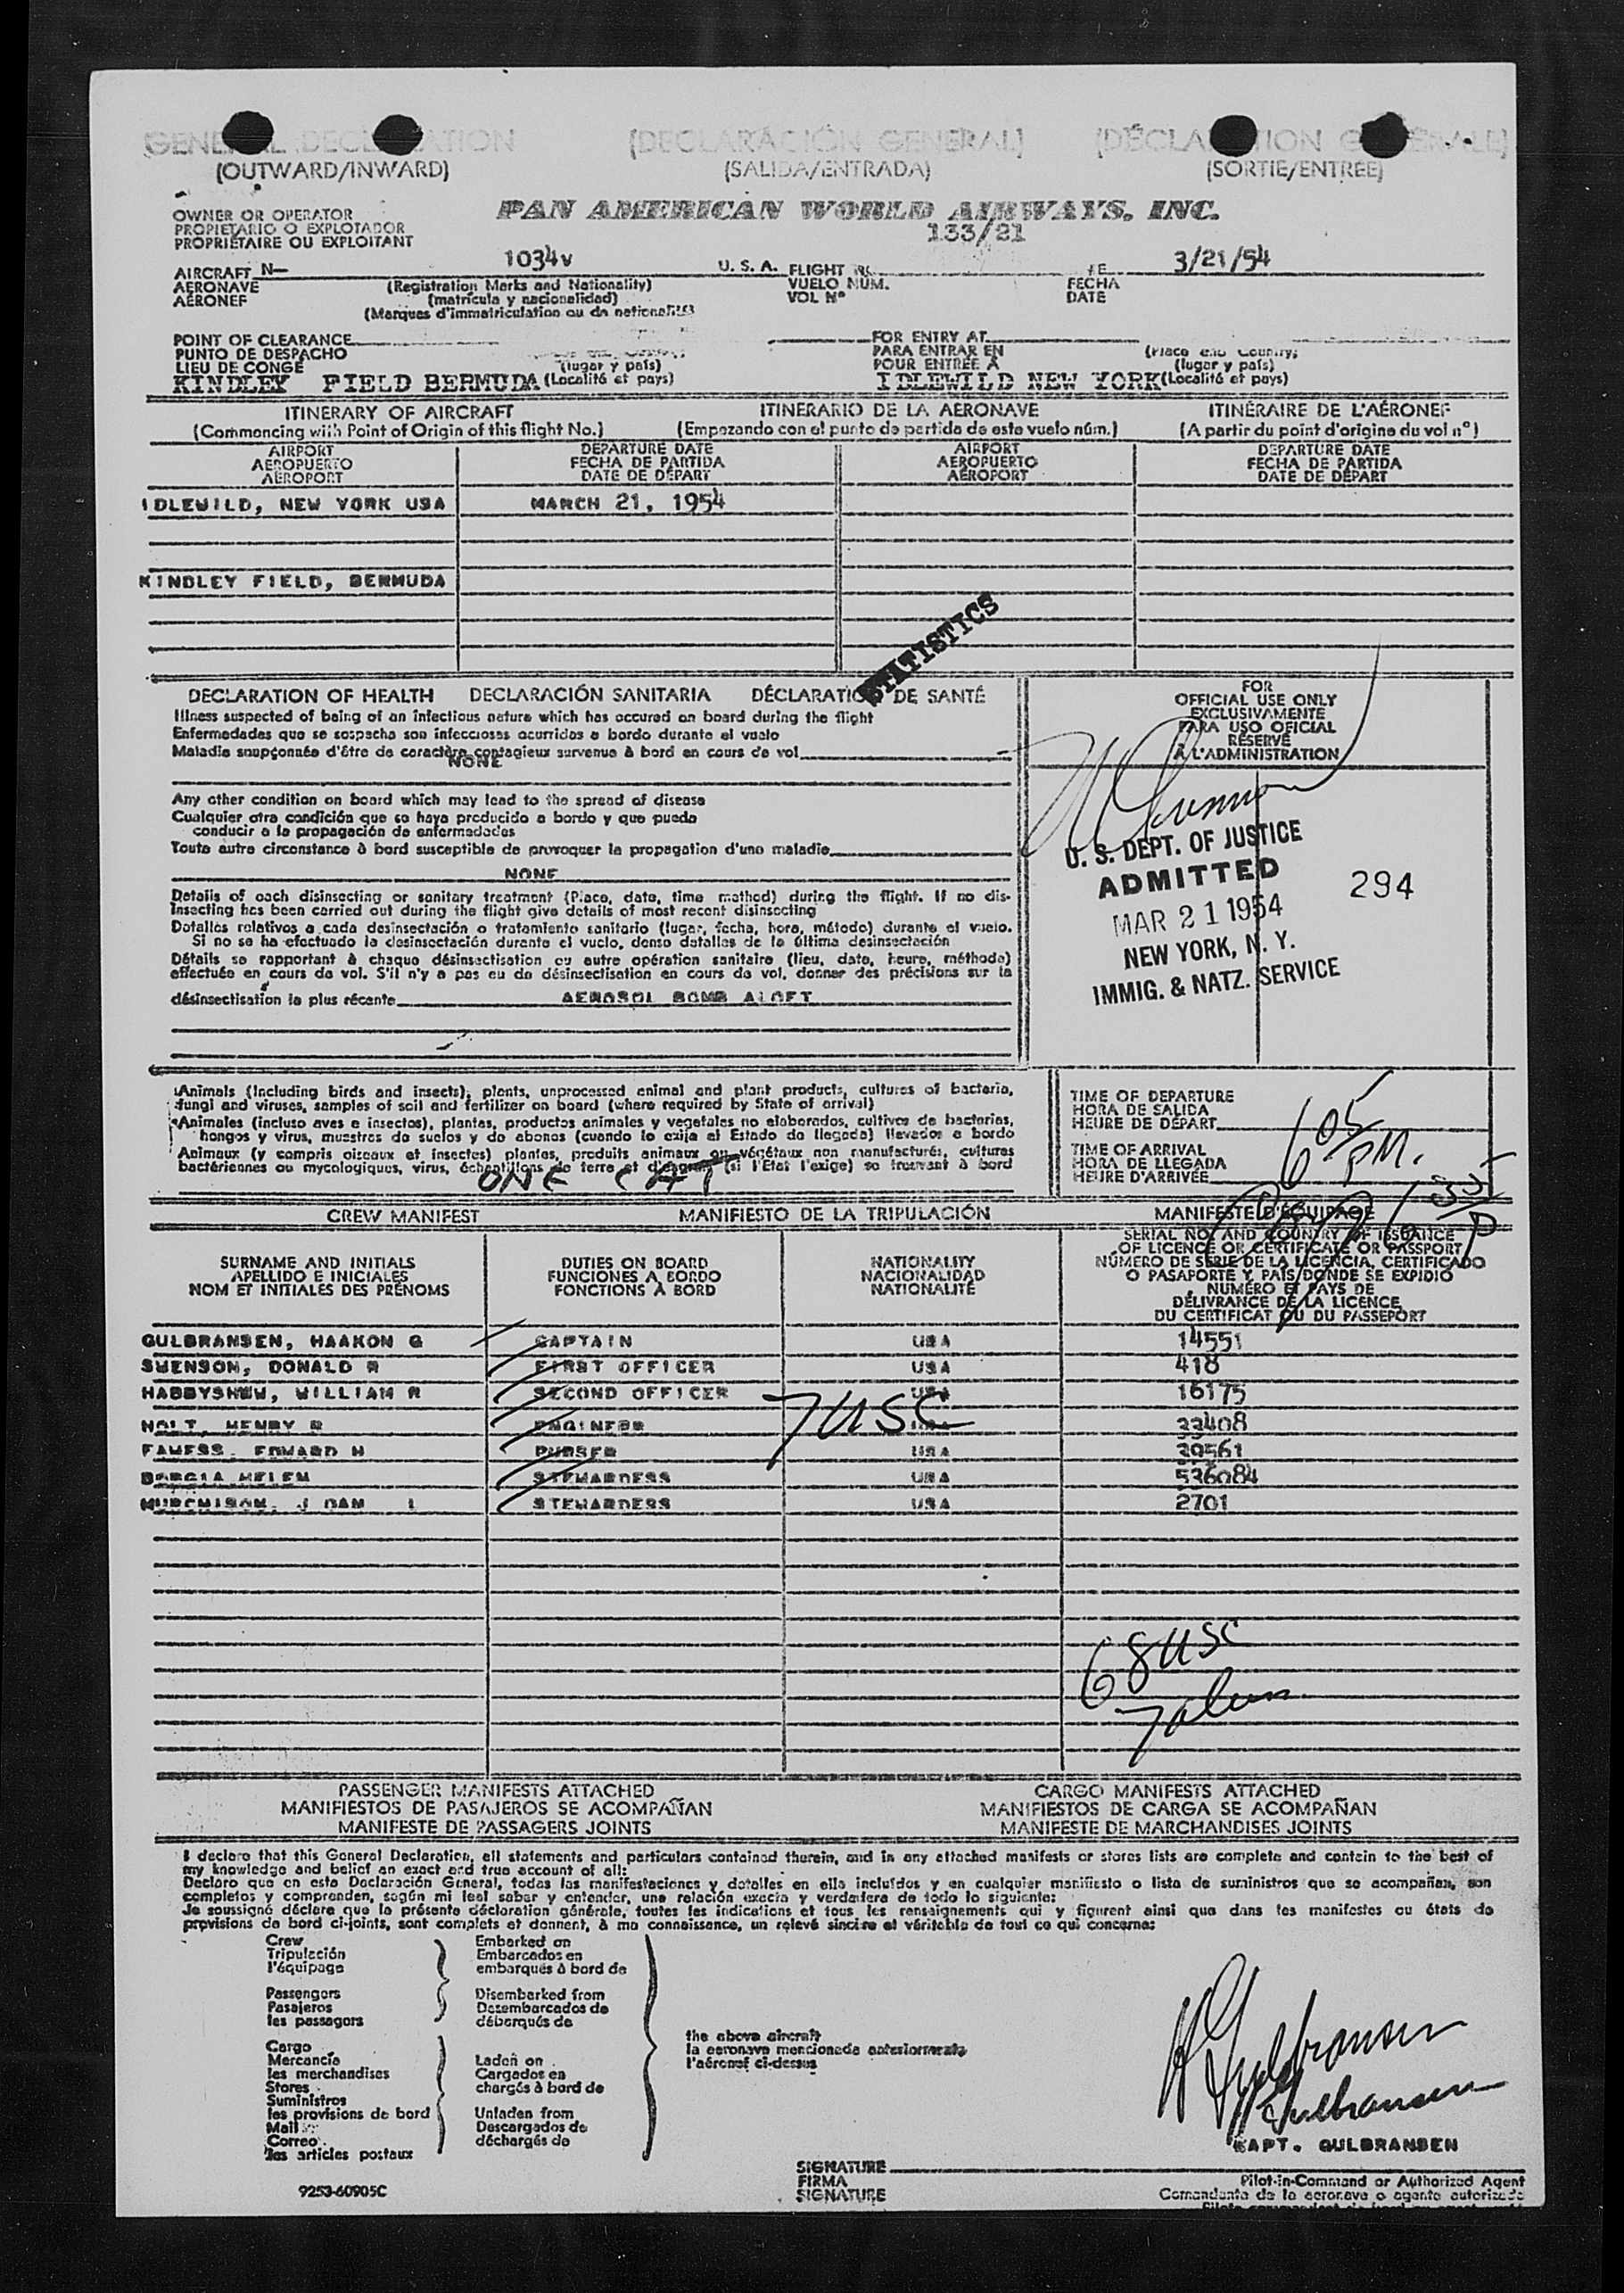 GENERAL DECLARATION (DECLARACIÓN GENERAL) (DÉCLARATION GÉNÉRALE)
(OUTWARD/INWARD) (SALIDA/ENTRADA) (SORTIE/ENTRÉE)
OWNER OR OPERATOR
PROPIETARIO O EXPLOTADOR
PROPRIÉTAIRE OU EXPLOITANT
PAN AMERICAN WORLD AIRWAYS, INC.
133/21
AIRCRAFT N— 1034V U. S. A. FLIGHT 3/21/54
AERONAVE (Registration Marks and Nationality) VUELO NÚM. FECHA
AÉRONEF (matrícula y nacionalidad) VOL Nº DATE
(Marques d'immatriculation ou de nationalité)
POINT OF CLEARANCE FOR ENTRY AT
PUNTO DE DESPACHO PARA ENTRAR EN (Place and Country)
LIEU DE CONGÉ (lugar y país) POUR ENTRÉE À (lugar y país)
KINDLEY FIELD BERMUDA (Localité et pays) IDLEWILD NEW YORK (Localité et pays)
ITINERARY OF AIRCRAFT ITINERARIO DE LA AERONAVE ITINÉRAIRE DE L'AÉRONEF
(Commencing with Point of Origin of this flight No.) (Empezando con el punto de partida de este vuelo núm.) (A partir du point d'origine du vol nº)
AIRPORT DEPARTURE DATE AIRPORT DEPARTURE DATE
AEROPUERTO FECHA DE PARTIDA AEROPUERTO FECHA DE PARTIDA
AÉROPORT DATE DE DÉPART AÉROPORT DATE DE DÉPART
IDLEWILD, NEW YORK USA MARCH 21, 1954
KINDLEY FIELD, BERMUDA
STATISTICS
DECLARATION OF HEALTH DECLARACIÓN SANITARIA DÉCLARATION DE SANTÉ
Illness suspected of being of an infectious nature which has occured on board during the flight
Enfermedades que se sospecha son infecciosas ocurridas a bordo durante el vuelo
Maladie soupçonnée d'être de caractère contagieux survenue à bord en cours de vol
NONE
Any other condition on board which may lead to the spread of disease
Cualquier otra condición que se haya producido a bordo y que pueda
conducir a la propagación de enfermedades
Toute autre circonstance à bord susceptible de provoquer la propagation d'une maladie
NONE
Details of each disinsecting or sanitary treatment (Place, date, time method) during the flight. If no dis-
insecting has been carried out during the flight give details of most recent disinsecting
Detalles relativos a cada desinsectación o tratamiento sanitario (lugar, fecha, hora, método) durante el vuelo.
Si no se ha efectuado la desinsectación durante el vuelo, dense detalles de la última desinsectación
Détails se rapportant à chaque désinsectisation ou autre opération sanitaire (lieu, date, heure, méthode)
effectuée en cours de vol. S'il n'y a pas eu de désinsectisation en cours de vol, donner des précisions sur la
désinsectisation la plus récente AEROSOL BOMB ALOFT
FOR
OFFICIAL USE ONLY
EXCLUSIVAMENTE
PARA USO OFICIAL
RÉSERVÉ
À L'ADMINISTRATION
U. S. DEPT. OF JUSTICE
ADMITTED
MAR 21 1954
NEW YORK, N. Y.
IMMIG. & NATZ. SERVICE
294
Animals (Including birds and insects), plants, unprocessed animal and plant products, cultures of bacteria,
fungi and viruses, samples of soil and fertilizer on board (where required by State of arrival)
Animales (incluso aves e insectos), plantas, productos animales y vegetales no elaborados, cultivos de bacterias,
hongos y virus, muestras de suelos y de abonos (cuando lo exija el Estado de llegada) llevados a bordo
Animaux (y compris oiseaux et insectes) plantes, produits animaux ou végétaux non manufacturés, cultures
bactériennes ou mycologiques, virus, échantillons de terre et d'engrais (si l'État l'exige) se trouvant à bord
ONE CAT
TIME OF DEPARTURE
HORA DE SALIDA
HEURE DE DÉPART
TIME OF ARRIVAL
HORA DE LLEGADA
HEURE D'ARRIVÉE
605
PM.
635
P
CREW MANIFEST MANIFIESTO DE LA TRIPULACIÓN MANIFESTE D'ÉQUIPAGE
SURNAME AND INITIALS
APELLIDO E INICIALES
NOM ET INITIALES DES PRÉNOMS
DUTIES ON BOARD
FUNCIONES A BORDO
FONCTIONS À BORD
NATIONALITY
NACIONALIDAD
NATIONALITÉ
SERIAL NO. AND COUNTRY OF ISSUANCE
OF LICENCE OR CERTIFICATE OR PASSPORT
NÚMERO DE SERIE DE LA LICENCIA, CERTIFICADO
O PASAPORTE Y PAÍS DONDE SE EXPIDIÓ
NUMÉRO ET PAYS DE
DÉLIVRANCE DE LA LICENCE,
DU CERTIFICAT OU DU PASSEPORT
GULBRANSEN, HAAKON G CAPTAIN USA 14551
SWENSON, DONALD R FIRST OFFICER USA 418
HABBYSHEW, WILLIAM R SECOND OFFICER USA 16175
HOLT, HENRY R ENGINEER USA 33408
FAWESS, EDWARD H PURSER USA 39561
BORGIA HELEN STEWARDESS USA 536084
MURCHISON, J DAN L STEWARDESS USA 2701
7USC
68USC
7alien
PASSENGER MANIFESTS ATTACHED CARGO MANIFESTS ATTACHED
MANIFIESTOS DE PASAJEROS SE ACOMPAÑAN MANIFIESTOS DE CARGA SE ACOMPAÑAN
MANIFESTE DE PASSAGERS JOINTS MANIFESTE DE MARCHANDISES JOINTS
I declare that this General Declaration, all statements and particulars contained therein, and in any attached manifests or stores lists are complete and contain to the best of
my knowledge and belief an exact and true account of all:
Declaro que en esta Declaración General, todas las manifestaciones y detalles en ella incluídos y en cualquier manifiesto o lista de suministros que se acompañan, son
completos y comprenden, según mi leal saber y entender, una relación exacta y verdadera de todo lo siguiente:
Je soussigné déclare que la présente déclaration générale, toutes les indications et tous les renseignements qui y figurent ainsi que dans les manifestes ou états de
provisions de bord ci-joints, sont complets et donnent, à ma connaissance, un relevé sincère et véritable de tout ce qui concerne:
Crew Embarked on
Tripulación Embarcados en
l'équipage embarqués à bord de
Passengers Disembarked from
Pasajeros Desembarcados de
les passagers débarqués de
Cargo
Mercancía Laden on
les merchandises Cargados en
Stores chargés à bord de
Suministros
les provisions de bord Unladen from
Mail Descargados de
Correo déchargés de
les articles postaux
the above aircraft
la aeronave mencionada anteriormente
l'aéronef ci-dessus
H Gulbransen
Gulbransen
CAPT. GULBRANSEN
SIGNATURE
FIRMA
SIGNATURE
Pilot-in-Command or Authorized Agent
Comandante de la aeronave o agente autorizado
9253-60905C